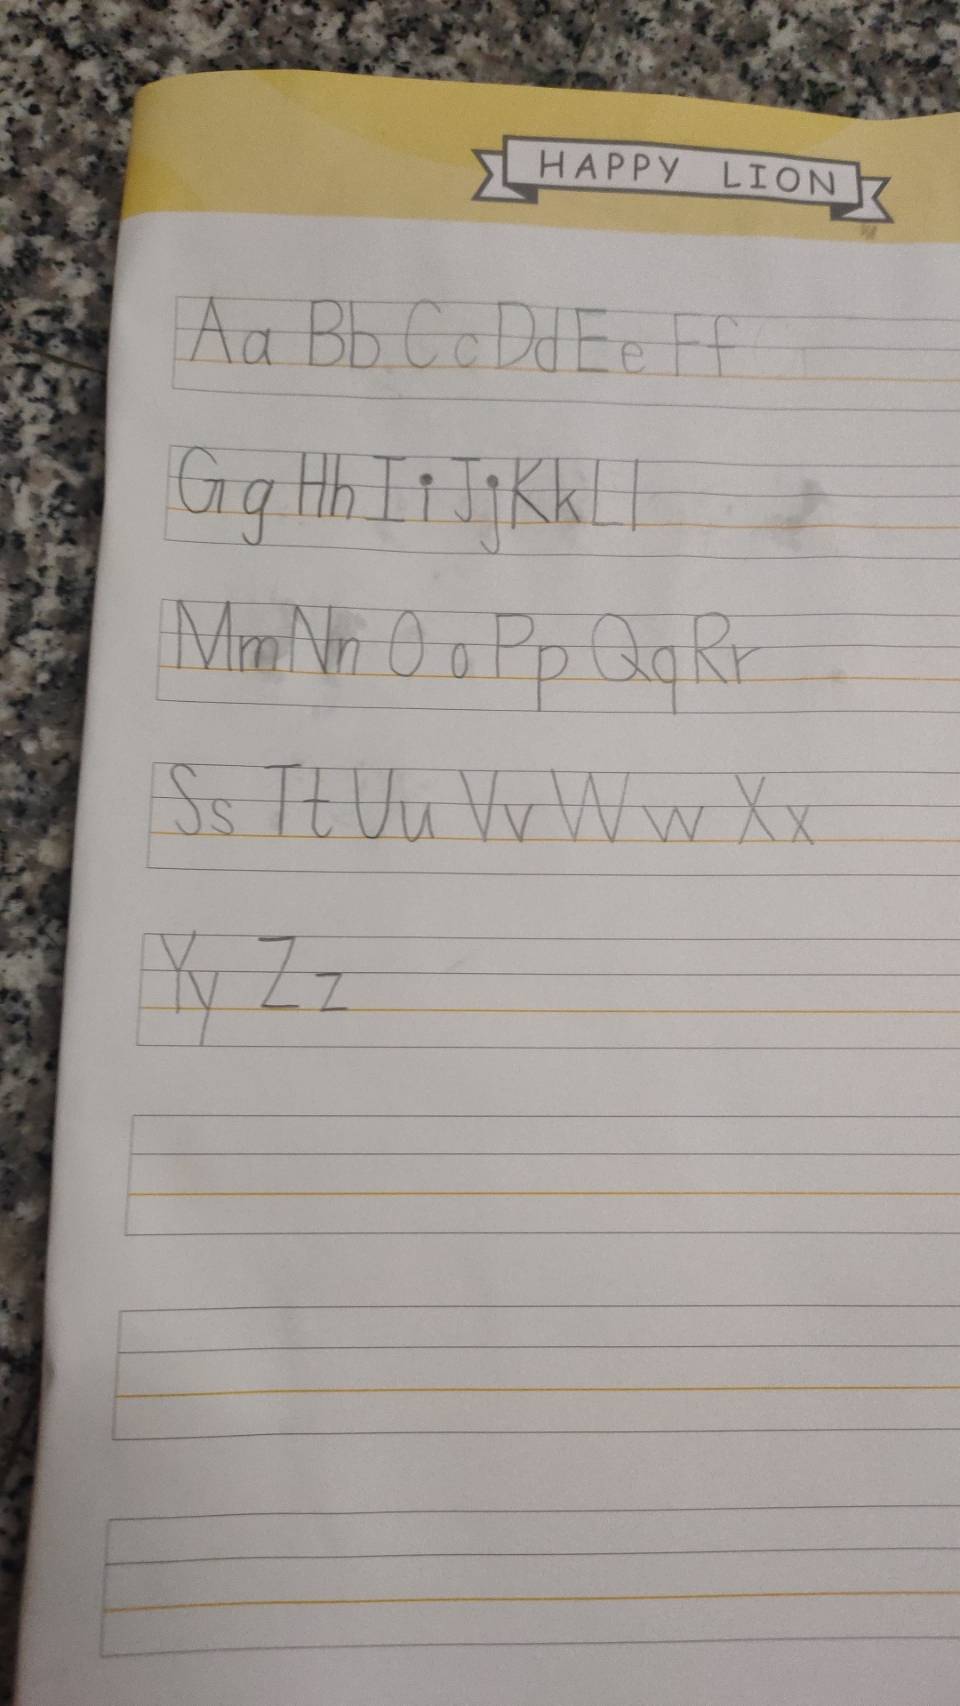 HAPPY LION
Aa Bb Cc Dd Ee Ff
Gg Hh Ii Jj Kk Ll
Mm Nn Oo Pp Qq Rr
Ss Tt Uu Vv Ww Xx
Yy Zz